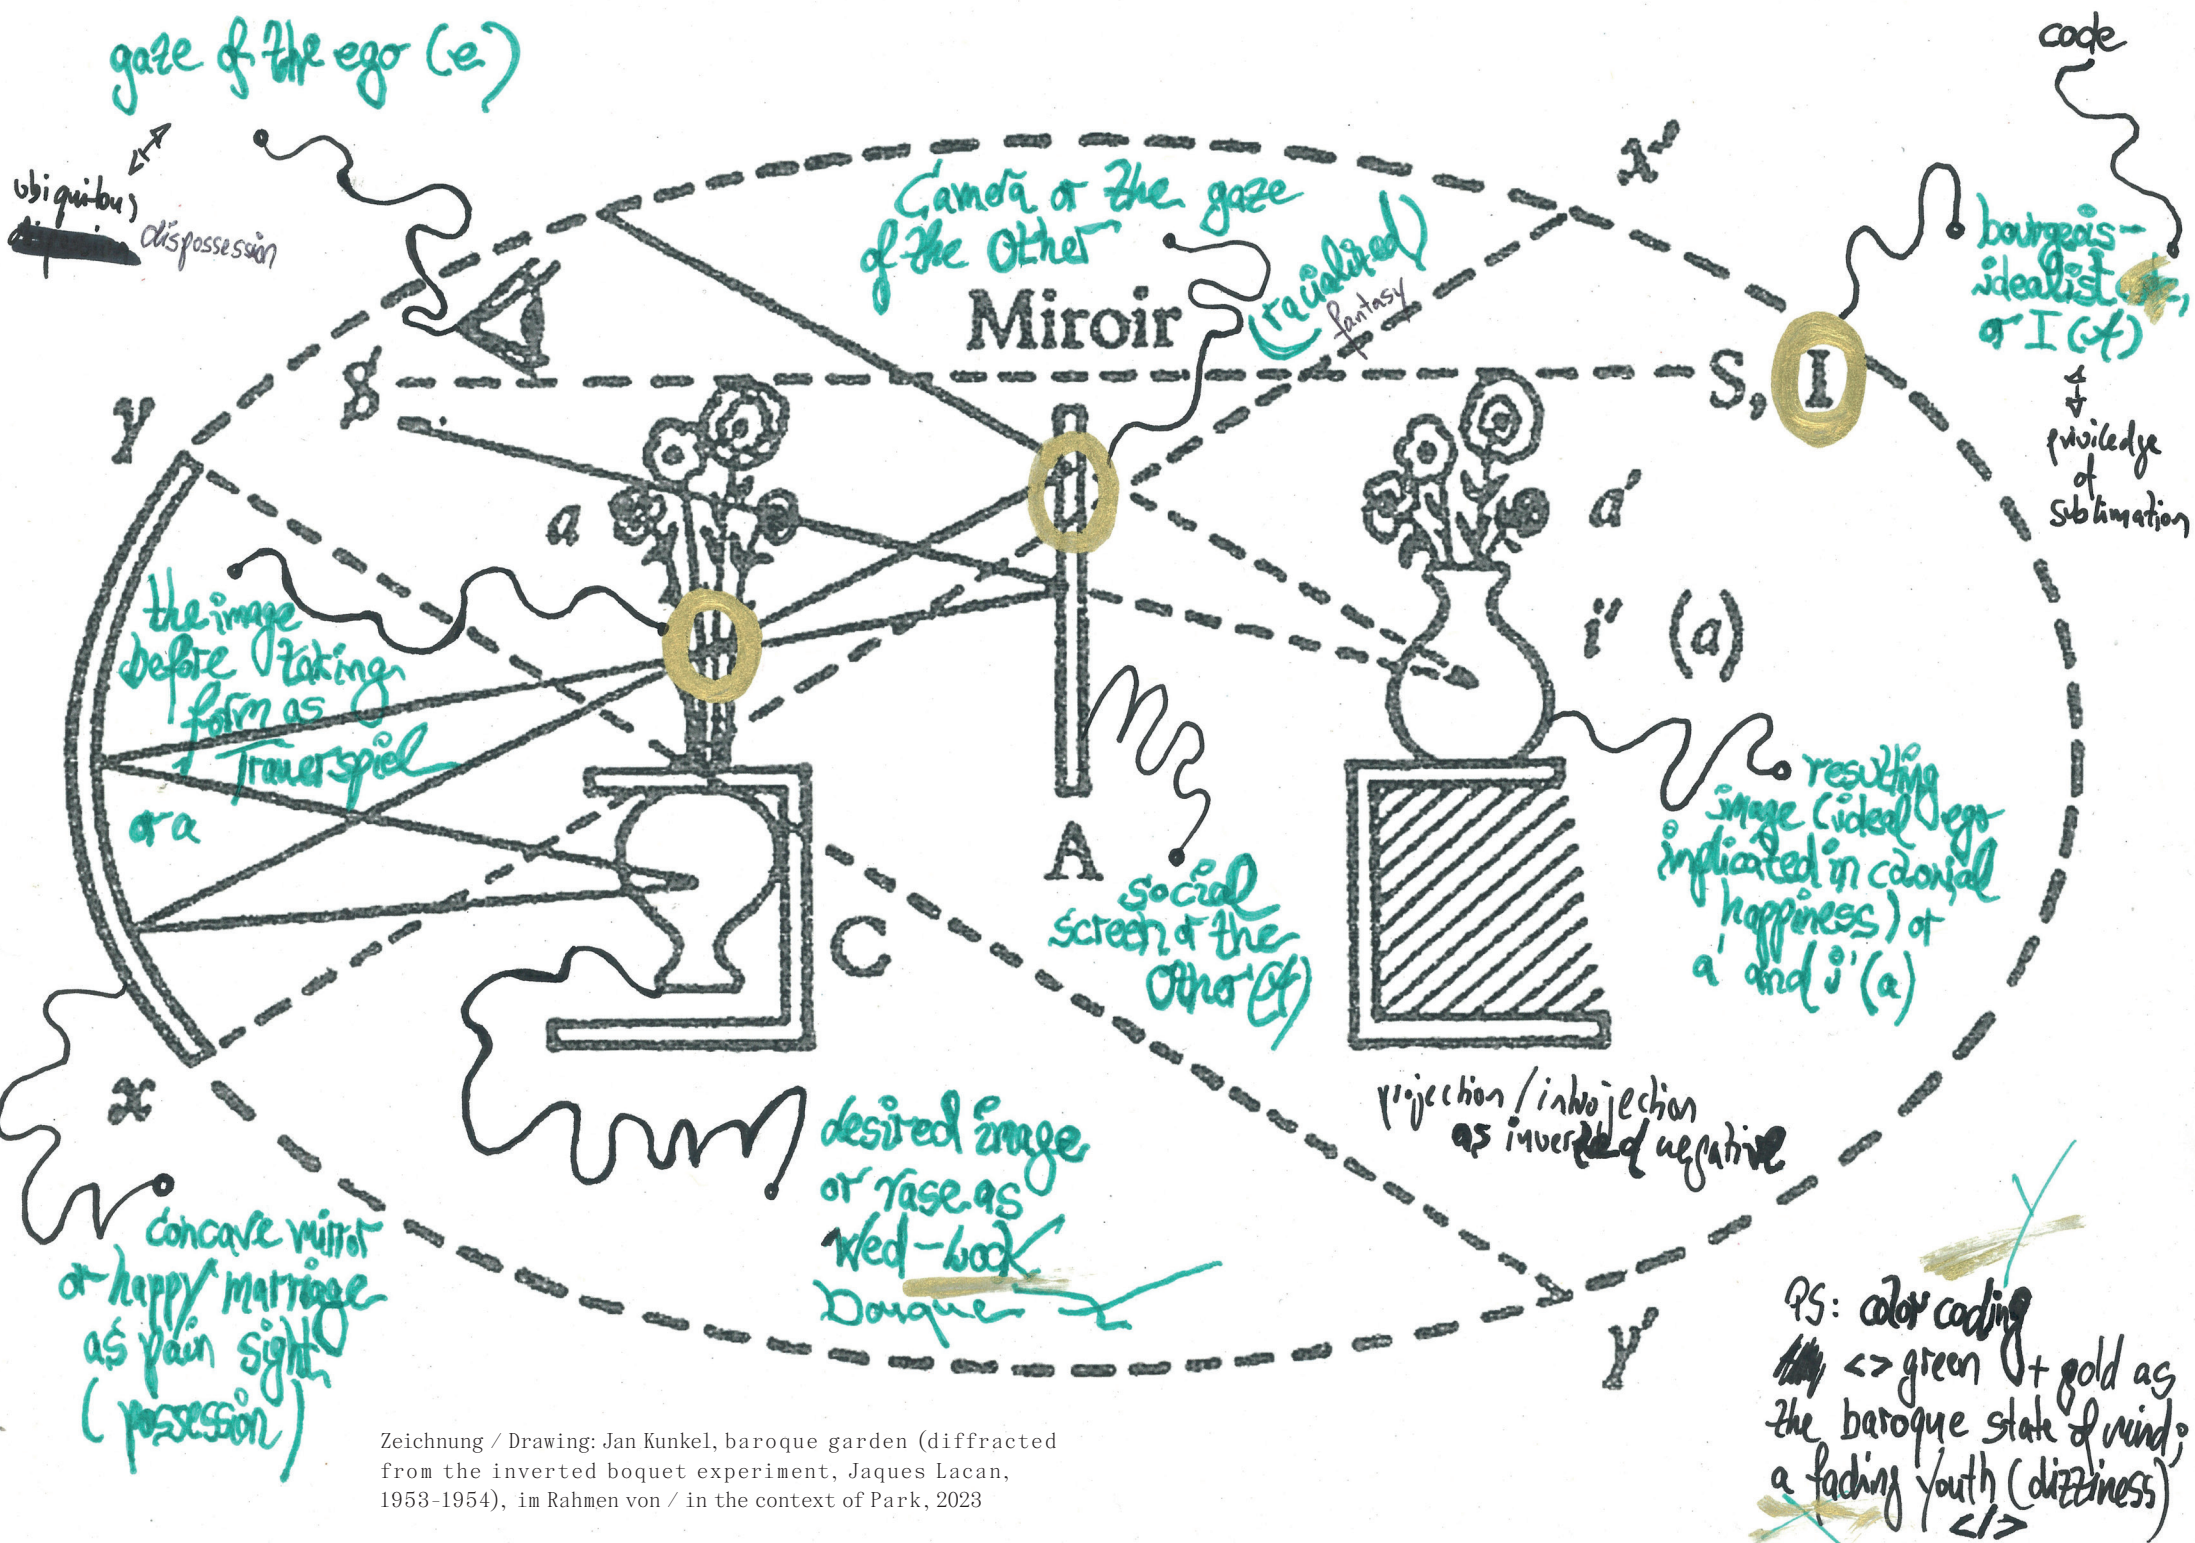 gaze of the ego (e)
ubiquitous
dispossession
code
Camera or the gaze
of the Other
(racialized)
fantasy
Miroir
x'
bourgeois-
idealist
or I (A)
priviledge
of
sublimation
$
S, I
y
a
a'
i' (a)
the image
before taking
form as
Trauerspiel
or a
A
C
social
screen or the
Other (A)
resulting
image (ideal ego
implicated in colonial
happiness) or
a' and i'(a)
x
projection / introjection
as inverted negative
desired image
or vase as
Wed-lock
Baroque
concave mirror
or happy marriage
as vain sight
(possession)
y'
PS: color coding
<> green + gold as
the baroque state of mind;
a fading youth (dizziness)
</>
Zeichnung / Drawing: Jan Kunkel, baroque garden (diffracted
from the inverted boquet experiment, Jaques Lacan,
1953-1954), im Rahmen von / in the context of Park, 2023